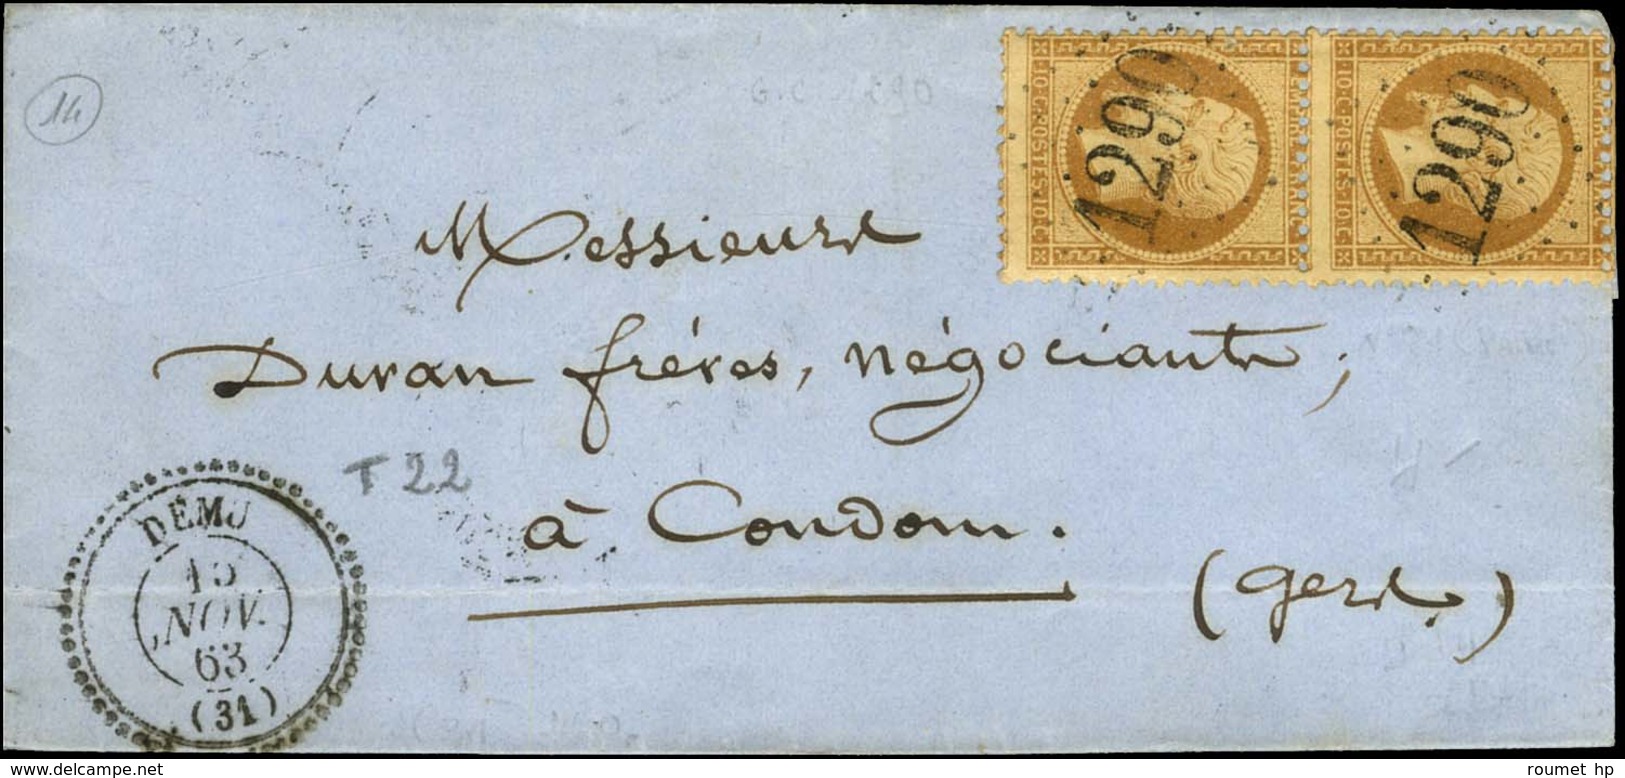 14
10 C. POSTES 10 C.
1290
10 C. POSTES 10 C.
1290
Messieurs
Duran frères, négociants,
T 22
à Condom.
(Gers)
DÉMU
15
NOV.
63
(31)
www.delcampe.net
roumet hp